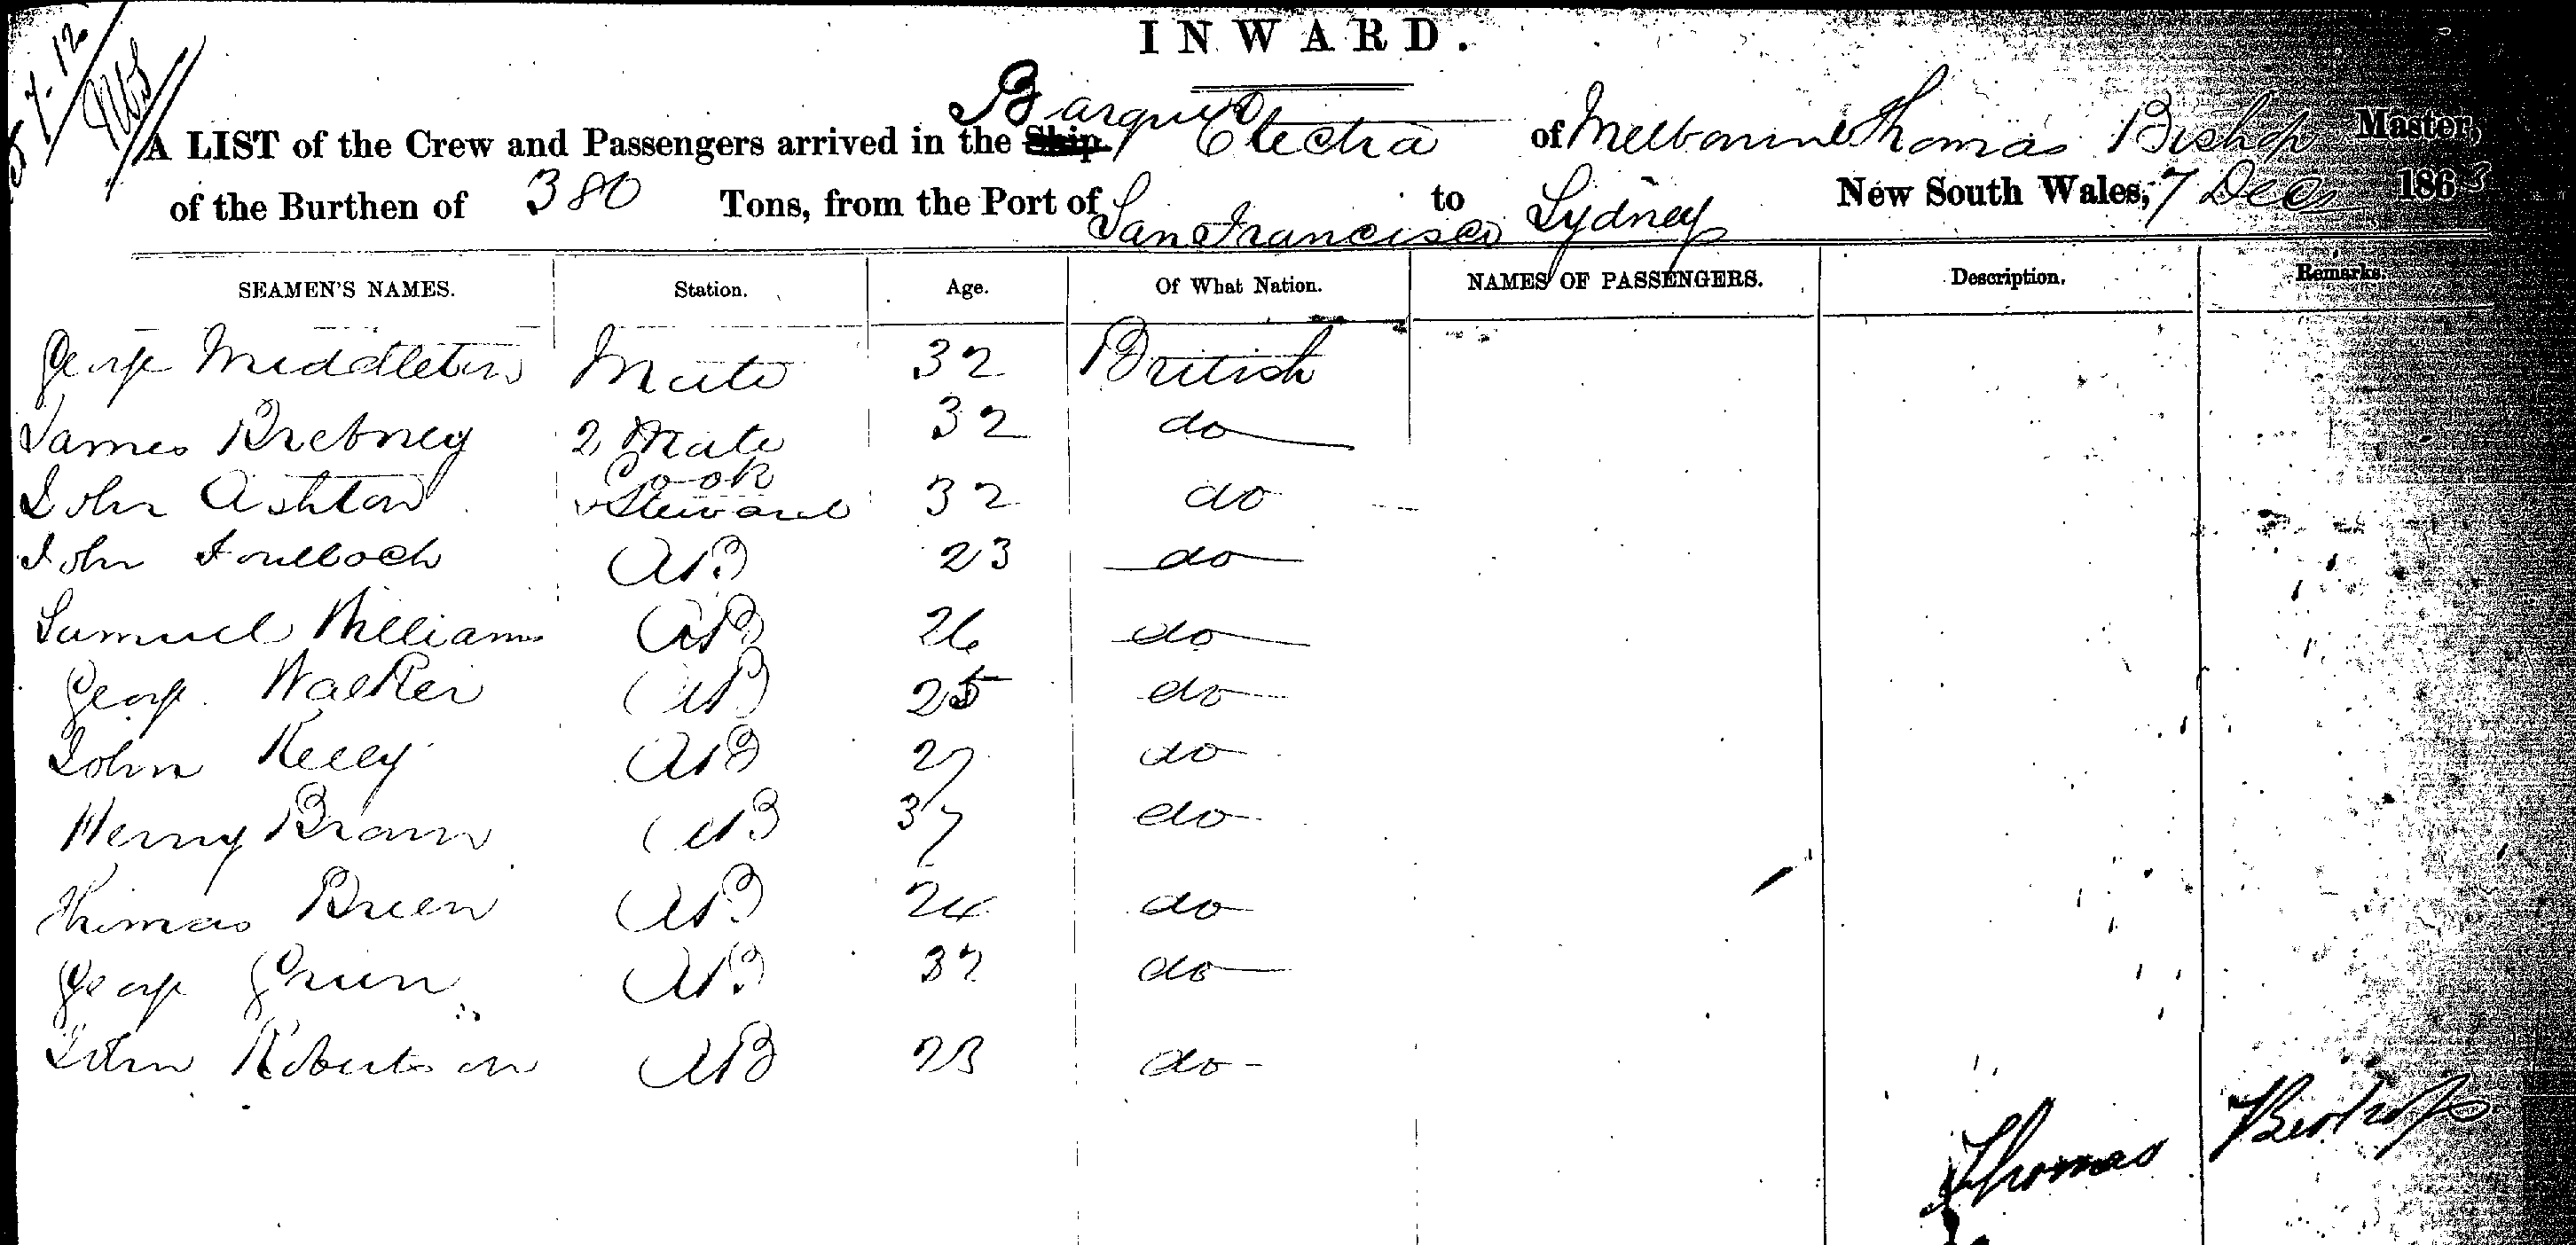 INWARD.
A LIST of the Crew and Passengers arrived in the Ship Barque Electra of Melbourne Thomas Bishop Master,
of the Burthen of 380 Tons, from the Port of San Francisco to Sydney New South Wales, 7 Dec 186
SEAMEN'S NAMES. Station. Age. Of What Nation. NAMES OF PASSENGERS. Description. Remarks.
George Middleton Mate 32 British
James Brebney 2 Mate 32 do
John Ashton Cook & Steward 32 do
John AB 23 do
Samuel Williams AB 26 do
George Walker AB 25 do
John Kelly AB 27 do
Henry Brown AB 37 do
Thomas Breen AB 24 do
George Green AB 32 do
John Robertson AB 23 do
Thomas Bishop